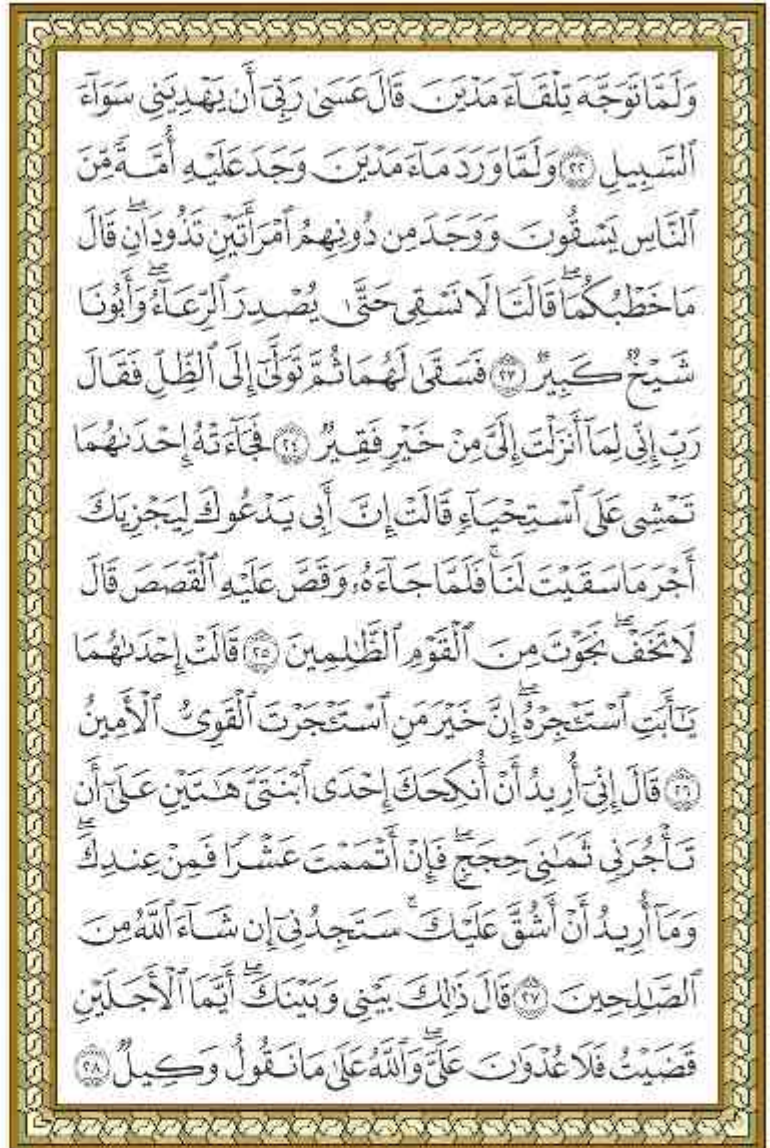 وَلَمَّا تَوَجَّهَ تِلْقَآءَ مَدْيَنَ قَالَ عَسَىٰ رَبِّىٓ أَن يَهْدِيَنِى سَوَآءَ
ٱلسَّبِيلِ ﴿٢٢﴾ وَلَمَّا وَرَدَ مَآءَ مَدْيَنَ وَجَدَ عَلَيْهِ أُمَّةً مِّنَ
ٱلنَّاسِ يَسْقُونَ وَوَجَدَ مِن دُونِهِمُ ٱمْرَأَتَيْنِ تَذُودَانِ ۖ قَالَ
مَا خَطْبُكُمَا ۖ قَالَتَا لَا نَسْقِى حَتَّىٰ يُصْدِرَ ٱلرِّعَآءُ ۖ وَأَبُونَا
شَيْخٌ كَبِيرٌ ﴿٢٣﴾ فَسَقَىٰ لَهُمَا ثُمَّ تَوَلَّىٰٓ إِلَى ٱلظِّلِّ فَقَالَ
رَبِّ إِنِّى لِمَآ أَنزَلْتَ إِلَىَّ مِنْ خَيْرٍ فَقِيرٌ ﴿٢٤﴾ فَجَآءَتْهُ إِحْدَىٰهُمَا
تَمْشِى عَلَى ٱسْتِحْيَآءٍ قَالَتْ إِنَّ أَبِى يَدْعُوكَ لِيَجْزِيَكَ
أَجْرَ مَا سَقَيْتَ لَنَا ۚ فَلَمَّا جَآءَهُۥ وَقَصَّ عَلَيْهِ ٱلْقَصَصَ قَالَ
لَا تَخَفْ ۖ نَجَوْتَ مِنَ ٱلْقَوْمِ ٱلظَّٰلِمِينَ ﴿٢٥﴾ قَالَتْ إِحْدَىٰهُمَا
يَٰٓأَبَتِ ٱسْتَـْٔجِرْهُ ۖ إِنَّ خَيْرَ مَنِ ٱسْتَـْٔجَرْتَ ٱلْقَوِىُّ ٱلْأَمِينُ
﴿٢٦﴾ قَالَ إِنِّىٓ أُرِيدُ أَنْ أُنكِحَكَ إِحْدَى ٱبْنَتَىَّ هَٰتَيْنِ عَلَىٰٓ أَن
تَأْجُرَنِى ثَمَٰنِىَ حِجَجٍ ۖ فَإِنْ أَتْمَمْتَ عَشْرًا فَمِنْ عِندِكَ ۖ
وَمَآ أُرِيدُ أَنْ أَشُقَّ عَلَيْكَ ۚ سَتَجِدُنِىٓ إِن شَآءَ ٱللَّهُ مِنَ
ٱلصَّٰلِحِينَ ﴿٢٧﴾ قَالَ ذَٰلِكَ بَيْنِى وَبَيْنَكَ ۖ أَيَّمَا ٱلْأَجَلَيْنِ
قَضَيْتُ فَلَا عُدْوَٰنَ عَلَىَّ ۖ وَٱللَّهُ عَلَىٰ مَا نَقُولُ وَكِيلٌ ﴿٢٨﴾